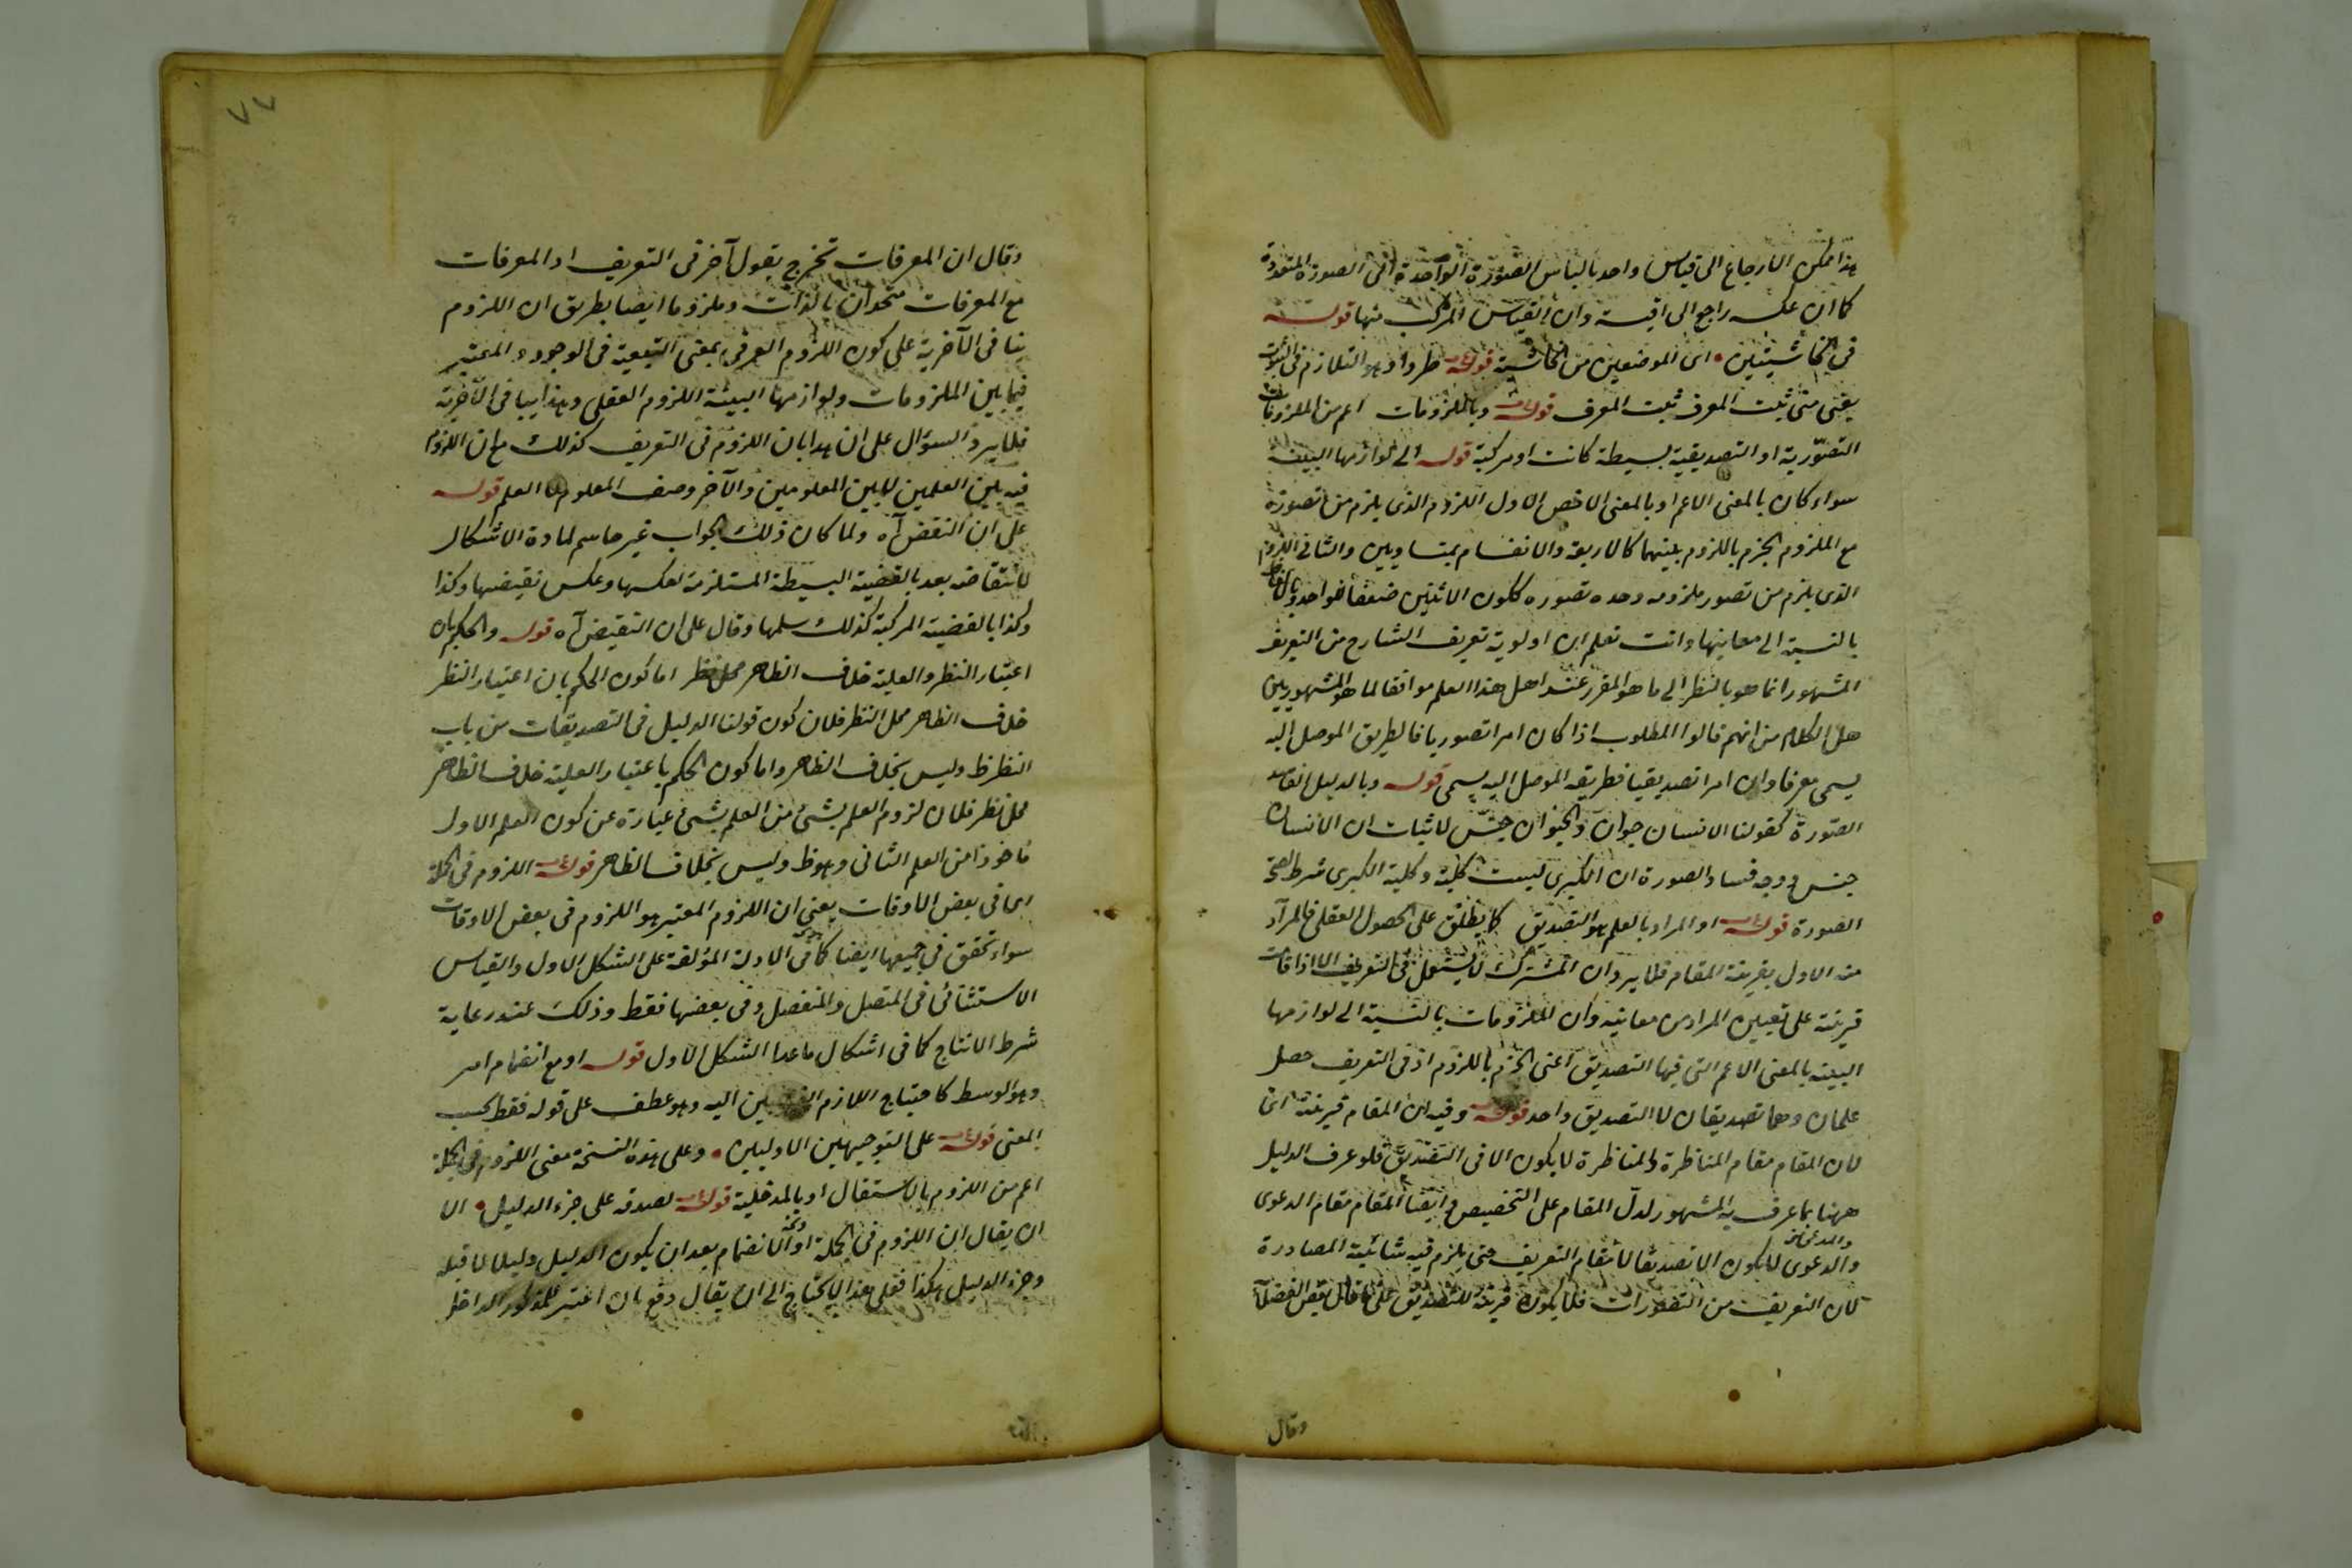 هذا يمكن الارجاع الى قياس واحد بالباس الصورة الواحدة الى الصورة المتعددة
كما ان عكسه راجع الى اقيسة وان القياس المركب منها قوله
في الحاشيتين • اى الموضعين من الحاشية قوله طردا وهو التلازم فى الثبوت
يعنى متى ثبت المعرف ثبت المعرف قوله وبالملزومات اعم من الملزومات
التصورية او التصديقية بسيطة كانت او مركبة قوله الى لوازمها البينة
سواء كان بالمعنى الاعم او بالمعنى الاخص الاول اللزوم الذى يلزم من تصوره
مع الملزوم الجزم باللزوم بينهما كالاربعة والانقسام بمتساويين والثانى اللزوم
الذى يلزم من تصور ملزومه وحده تصوره ككون الاثنين ضعفا لواحد
بالنسبة الى معاينها وانت تعلم ان اولوية تعريف الشارح من التعريف
المشهور انما هو بالنظر الى ما هو المقرر عند اهل هذا العلم موافقا لما هو المشهور بين
هل الكلام من انهم قالوا المطلوب اذا كان امرا تصوريا فالطريق الموصل اليه
يسمى معرفا وان امرا تصديقيا فطريقه الموصل اليه يسمى قوله وبالدليل الفاسد
الصورة كقولنا الانسان حيوان والحيوان جنس لاثبات ان الانسان
جنس ووجه فساد الصورة ان الكبرى ليست كلية وكلية الكبرى شرط لصحة
الصورة قوله او المراد بالعلم هو التصديق كما يطلق على الحصول العقلى فالمراد
منه الاول بقرينة المقام فلا يرد ان المشترك لا يستعمل فى التعريف الا اذا قامت
قرينة على تعيين المراد من معانيه وان الملزومات بالنسبة الى لوازمها
البينة بالمعنى الاعم التى فيها التصديق اعنى الجزم باللزوم اذ فى التعريف حصل
علمان وهما تصديقان لا التصديق واحد قوله وفيه ان المقام قرينة اى
لان المقام مقام المناظرة والمناظرة لا يكون الا فى التصديق فلو عرف الدليل
ههنا بما عرف به المشهور لدل المقام على التخصيص وايضا المقام مقام الدعوى
والدعوى لا يكون الا تصديقا لا مقام التعريف حتى يلزم فيه شائبة المصادرة
لان التعريف من التصورات فلا يكون قرينة للتصديق على ما قال بعض الفضلاء
وقال
وقال ان المعرفات تخرج بقول آخر فى التعريف اذ المعرفات
مع المعرفات متحدان بالذات وملزوما ايضا بطريق ان اللزوم
ينافى الآخرية على كون اللزوم العرفى بمعنى التبعية فى الوجود والمعتبر
فيما بين الملزومات ولوازمها البينة اللزوم العقلى وهذا ينافى الآخرية
فلا يرد السؤال على ان هذا بان اللزوم فى التعريف كذلك مع ان اللزوم
فيه بين العلمين لا بين المعلومين والآخر وصف المعلوم لا العلم قوله
على ان النقض آه ولما كان ذلك الجواب غير حاسم لمادة الاشكال
لانتقاضه بعد بالقضية البسيطة المستلزمة لعكسها وعكس نقيضها وكذا
وكذا بالقضية المركبة كذلك سلمها وقال على ان النقيض آه قوله والحكم بان
اعتبار النظر والعلية خلاف الظاهر محل نظر اما كون الحكم بان اعتبار النظر
خلاف الظاهر محل النظر فلان كون قولنا الدليل فى التصديقات من باب
النظر ظ وليس بخلاف الظاهر واما كون الحكم باعتبار العلية خلاف الظاهر
محل نظر فلان لزوم العلم بشئ من العلم بشئ عبارة عن كون العلم الاول
ماخوذا من العلم الثانى وهو ظ وليس بخلاف الظاهر قوله اللزوم فى الجملة
اى فى بعض الاوقات يعنى ان اللزوم المعتبر هو اللزوم فى بعض الاوقات
سواء تحقق فى جميعها ايضا كما فى الادلة المؤلفة على الشكل الاول والقياس
الاستثنائى فى المتصل والمنفصل وفى بعضها فقط وذلك عند رعاية
شرط الانتاج كما فى اشكال ماعدا الشكل الاول قوله او مع انضمام امر
وهو الوسط كاحتياج اللازم الغير البين اليه وهو عطف على قوله فقط بحسب
المعنى قوله على التوجيهين الاوليين • وعلى هذه النسخة معنى اللزوم فى الجملة
اعم من اللزوم بالاستقلال او بالمدخلية قوله لصدقه على جزء الدليل • الا
ان يقال ان اللزوم فى الجملة او الانضمام بعد ان يكون الدليل دليلا لا قبله
وجزء الدليل هكذا فعلى هذا لا يحتاج الى ان يقال دفع بان اعتبر